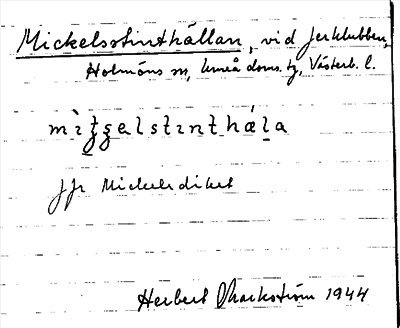 Mickelsstinthällan, vid Jerklubben,
Holmöns sn, Umeå doms. tg, Västerb. l.
mìʒgelstɪntháɛ̣la
jfr Mickelsdiket
Herbert Markström 1944